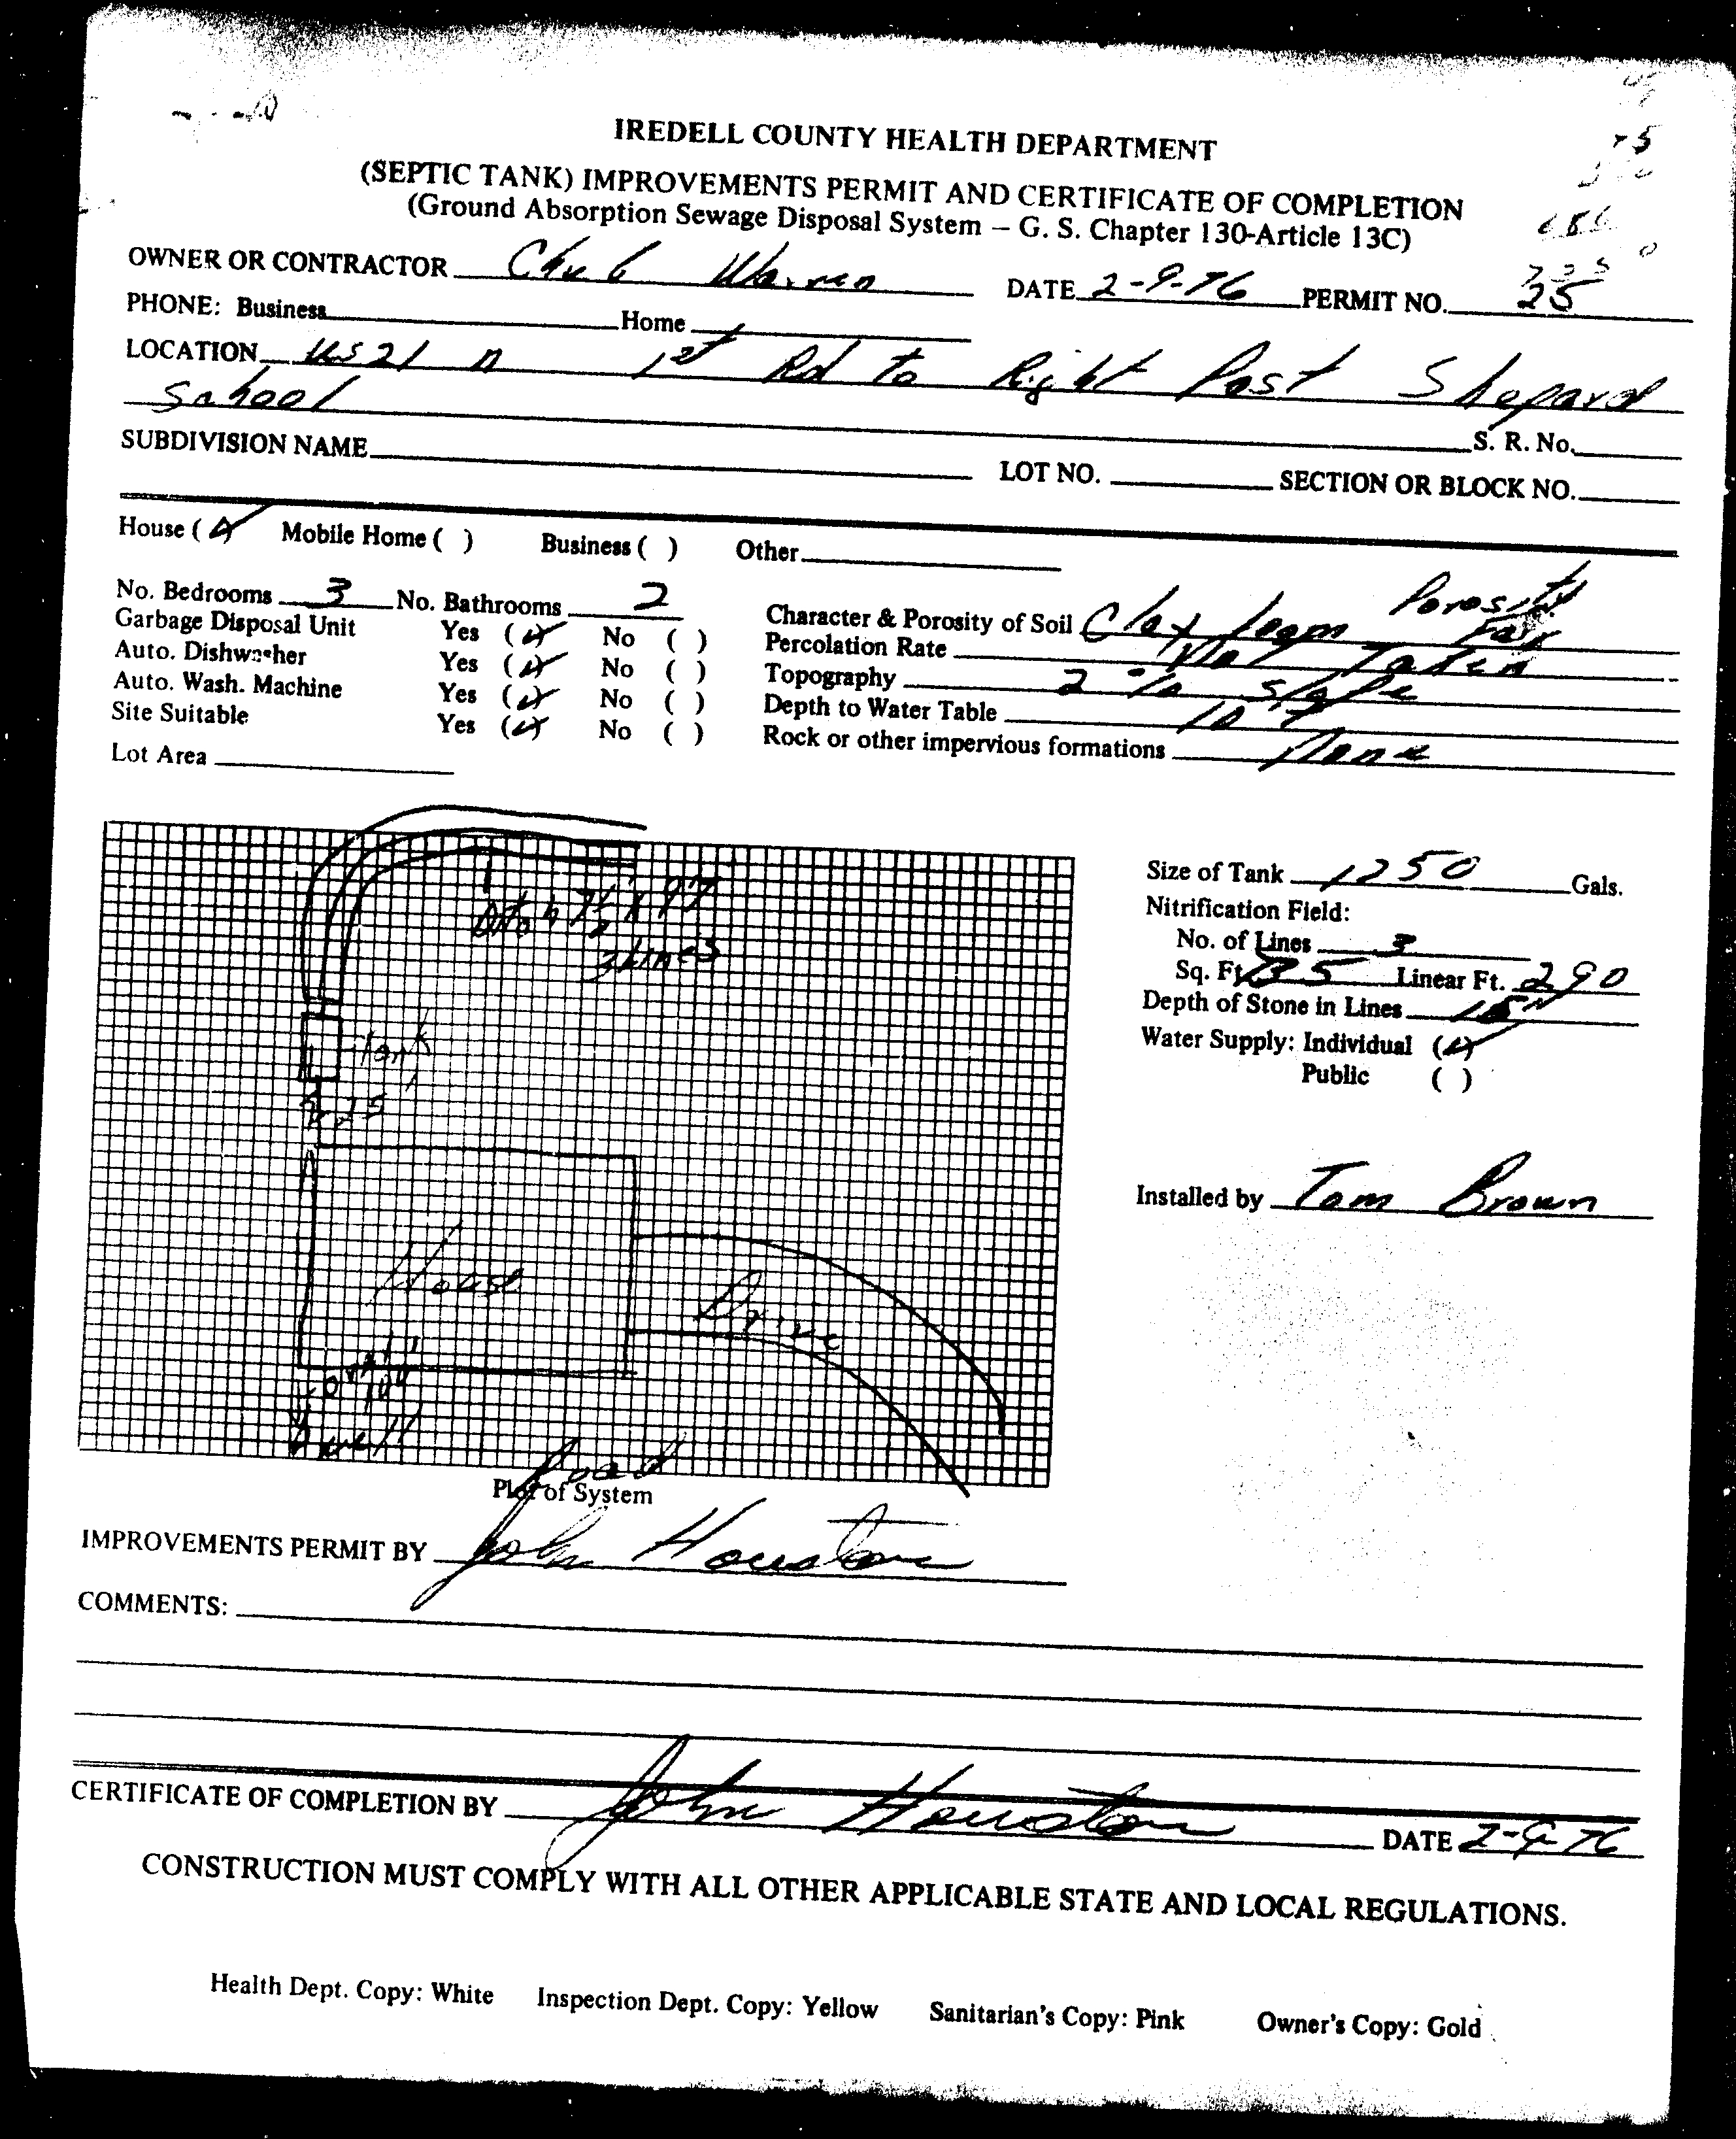 IREDELL COUNTY HEALTH DEPARTMENT
(SEPTIC TANK) IMPROVEMENTS PERMIT AND CERTIFICATE OF COMPLETION
(Ground Absorption Sewage Disposal System – G. S. Chapter 130-Article 13C)
OWNER OR CONTRACTOR DATE 2-9-76 PERMIT NO. 25
PHONE: Business Home
LOCATION US 21 n 1st Rd to Right Past Shepard
School
S. R. No.
SUBDIVISION NAME LOT NO. SECTION OR BLOCK NO.
House (✓) Mobile Home ( ) Business ( ) Other
No. Bedrooms 3 No. Bathrooms 2
Garbage Disposal Unit Yes (✓) No ( )
Auto. Dishwasher Yes (✓) No ( )
Auto. Wash. Machine Yes (✓) No ( )
Site Suitable Yes (✓) No ( )
Lot Area
Character & Porosity of Soil Clay loam Porosity
Percolation Rate Not Taken
Topography 2 % slope
Depth to Water Table
Rock or other impervious formations None
3 Lines
Tank
25'
House
Drive
100'
well
Road
Plot of System
Size of Tank 1250 Gals.
Nitrification Field:
No. of Lines 3
Sq. Ft. Linear Ft. 290
Depth of Stone in Lines
Water Supply: Individual (✓)
Public ( )
Installed by Tom Brown
IMPROVEMENTS PERMIT BY John Houston
COMMENTS:
CERTIFICATE OF COMPLETION BY John Houston DATE 2-9-76
CONSTRUCTION MUST COMPLY WITH ALL OTHER APPLICABLE STATE AND LOCAL REGULATIONS.
Health Dept. Copy: White Inspection Dept. Copy: Yellow Sanitarian's Copy: Pink Owner's Copy: Gold